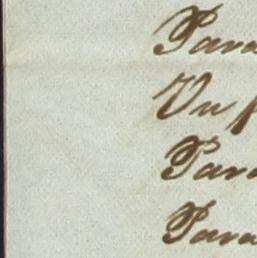 Para
Un
Para
Para